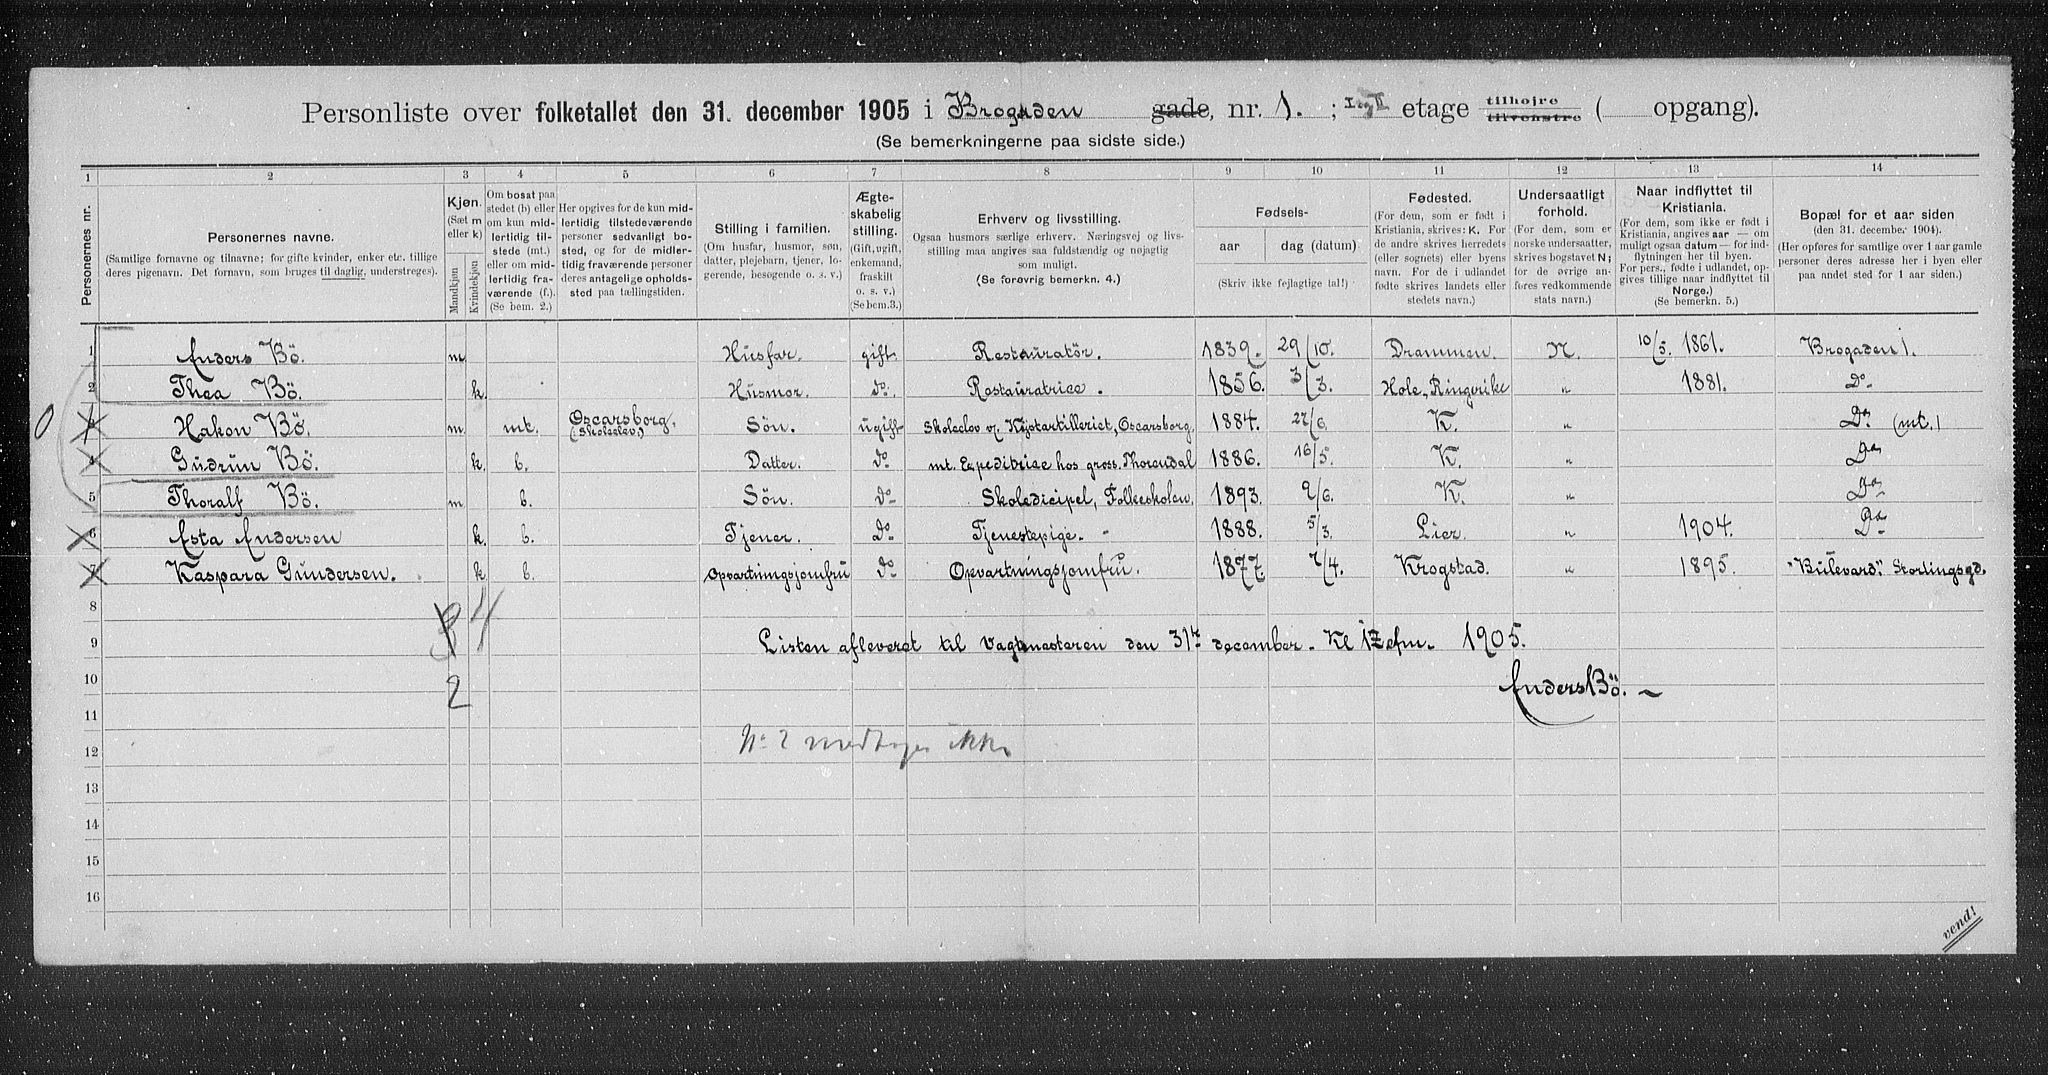 Personliste over folketallet den 31. december 1905 i Brogaden gade, nr. 1. ; I og II etage tilhøjre tilvenstre ( opgang).
(Se bemerkningerne paa sidste side.)
1 2 3 4 5 6 7 8 9 10 11 12 13 14
Personernes nr.
Personernes navne.
(Samtlige fornavne og tilnavne; for gifte kvinder, enker etc. tillige
deres pigenavn. Det fornavn, som bruges til daglig, understreges).
Kjøn.
(Sæt m
eller k)
Mandkjøn
Kvindekjøn
Om bosat paa
stedet (b) eller
om kun mid-
lertidig til-
stede (mt.)
eller om mid-
lertidig fra-
værende (f.).
(Se bem. 2.)
Her opgives for de kun mid-
lertidig tilstedeværende
personer sedvanligt bo-
sted, og for de midler-
tidig fraværende personer
deres antagelige opholds-
sted paa tællingstiden.
Stilling i familien.
(Om husfar, husmor, søn,
datter, plejebarn, tjener, lo-
gerende, besøgende o. s. v.)
Ægte-
skabelig
stilling.
(Gift, ugift,
enkemand,
fraskilt
o. s. v.)
(Se bem.3.)
Erhverv og livsstilling.
Ogsaa husmors særlige erhverv. Næringsvej og livs-
stilling maa angives saa fuldstændig og nøjagtig
som muligt.
(Se forøvrig bemerkn. 4.)
Fødsels-
aar dag (datum).
(Skriv ikke fejlagtige tal!)
Fødested.
(For dem, som er født i
Kristiania, skrives: K. For
de andre skrives herredets
(eller sognets) eller byens
navn. For de i udlandet
fødte skrives landets eller
stedets navn.)
Undersaatligt
forhold.
(For dem, som er
norske undersaatter,
skrives bogstavet N;
for de øvrige an-
føres vedkommende
stats navn.)
Naar indflyttet til
Kristiania.
(For dem, som ikke er født i
Kristiania, angives aar — om
muligt ogsaa datum — for ind-
flytningen her til byen.
For pers., fødte i udlandet, op-
gives tillige naar indflyttet til
Norge.)
(Se bemerkn. 5.)
Bopæl for et aar siden
(den 31. december 1904).
(Her opføres for samtlige over 1 aar gamle
personer deres adresse her i byen eller
paa andet sted for 1 aar siden.)
1 Anders Bö. m Husfar. gift. Restauratör. 1839. 29/10. Drammen. N. 10/5. 1861. Brogaden 1.
2 Thea Bö. k. Husmor. do. Restauratrice. 1856. 3/3. Hole, Ringerike " 1881. Do.
0 3 Hakon Bö. m. mt. Oscarsborg. (Skoleelev) Sön. ugift Skoleelev v/ Kystartilleriet, Oscarsborg. 1884. 27/6. K. " Do. (mt.)
4 Gudrun Bö. k. b. Datter. do mt. Expeditrice hos gross. Thorendal 1886. 16/5. K. " Do
5 Thoralf Bö. m b. Sön. do Skoledicipel, Folkeskolen. 1893. 9/6. K. " Do
6 Asta Andersen k. b. Tjener. Do Tjenestepige. - 1888. 5/3. Lier. " 1904. Do
7 Kaspara Gundersen. k b. Opvartningsjomfru do Opvartningsjomfru. 1877. 7/4. Krogstad. " 1895. "Bulevard." Stortingsgd.
8
4
9 Listen afleveret til Vagtmesteren den 31te december. Kl 12 efm. 1905.
10 2 Anders Bö.
11
12 No 2 medtages ikke
13
14
15
16
vend!